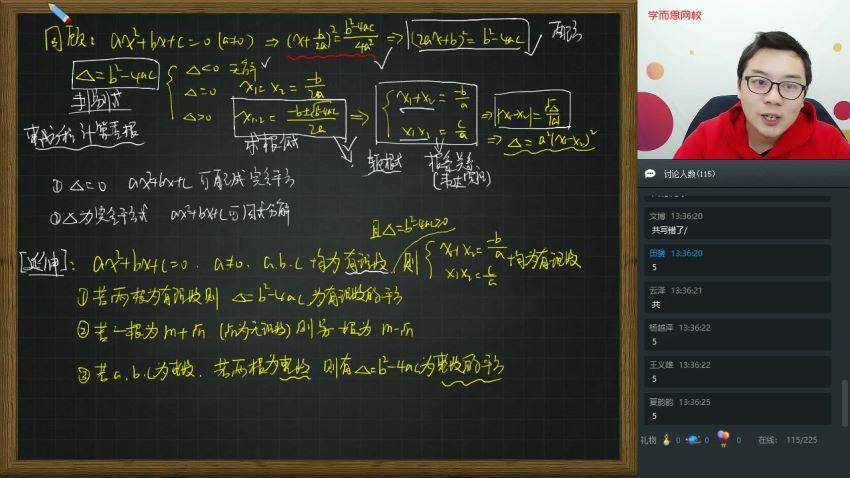 回顾: ax²+bx+c=0 (a≠0) ⇒ (x+b/2a)²=(b²-4ac)/4a² ⇒ (2ax+b)²=b²-4ac 配方
Δ=b²-4ac { Δ<0 无解
Δ=0 x₁=x₂=-b/2a
Δ>0 x₁,₂=(-b±√b²-4ac)/2a ⇒ { x₁+x₂=-b/a x₁x₂=c/a ⇒ |x₁-x₂|=√Δ/|a|
⇒ Δ=a²(x₁-x₂)²
判别式
求根公式
根系关系
(韦达定理)
① Δ=0 ax²+bx+c 可配成完全平方
② Δ为完全平方式 ax²+bx+c可因式分解
且Δ=b²-4ac≥0
[延伸]: ax²+bx+c=0. a≠0. a.b.c 均为有理数, 则 { x₁+x₂=-b/a x₁x₂=c/a 均为有理数
① 若两根为有理数则 Δ=b²-4ac 为有理数的平方
② 若一根为 m+√n (√n为无理数) 则另一根为 m-√n
③ 若a.b.c为整数. 若两根为整数 则有Δ=b²-4ac为整数的平方
学而思网校
讨论人数(115)
文博 13:36:20
共写错了/
田赟 13:36:20
5
云泽 13:36:21
共
杨越泽 13:36:22
5
王义雄 13:36:22
5
夏韵韵 13:36:25
5
礼物 0 0 0 在线: 115/225